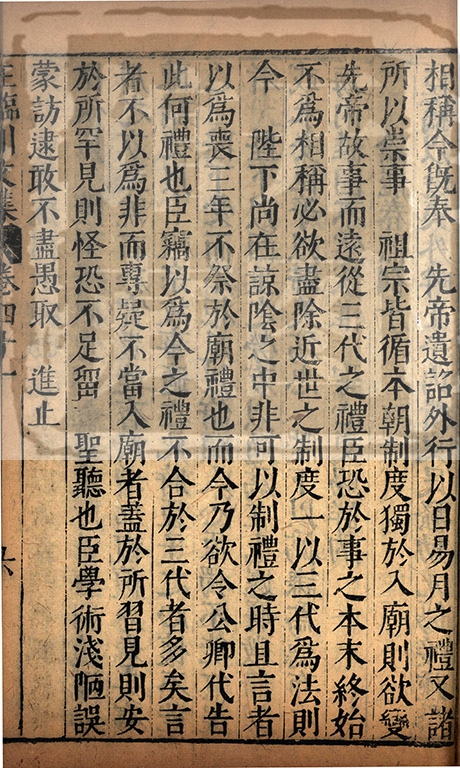 相稱今旣奉　先帝遺詔外行以日易月之禮又諸
所以崇事　祖宗皆循本朝制度獨於入廟則欲變
先帝故事而遠從三代之禮臣恐於事之本末終始
不爲相稱必欲盡除近世之制度一以三代爲法則
今　陛下尚在諒陰之中非可以制禮之時且言者
以爲喪三年不祭於廟禮也而今乃欲令公卿代告
此何禮也臣竊以爲今之禮不合於三代者多矣言
者不以爲非而專疑不當入廟者蓋於所習見則安
於所罕見則怪恐不足留　聖聽也臣學術淺陋誤
蒙訪逮敢不盡愚取　進止
王臨川文集　卷四十一　六